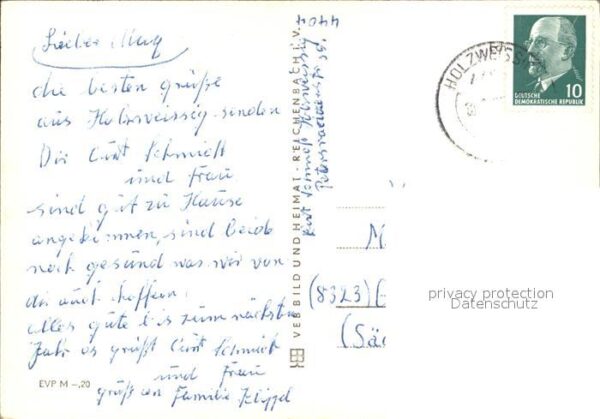 Lieber
die besten Grüße
aus Holzweissig senden
Dir Curt Schmidt
und Frau
sind gut zu Hause
angekommen, sind beide
noch gesund was wir von
dir auch hoffen.
Alles gute bis zum nächsten
Jahr es grüßt Curt Schmidt
und Frau
grüß an Familie
EVP M -,20
VEB BILD UND HEIMAT · REICHENBACH i. V.
4404
Kurt Schmidt Holzweissig
HOLZWEISSIG
10
DEUTSCHE
DEMOKRATISCHE REPUBLIK
M
(8323)
(Sä
privacy protection
Datenschutz